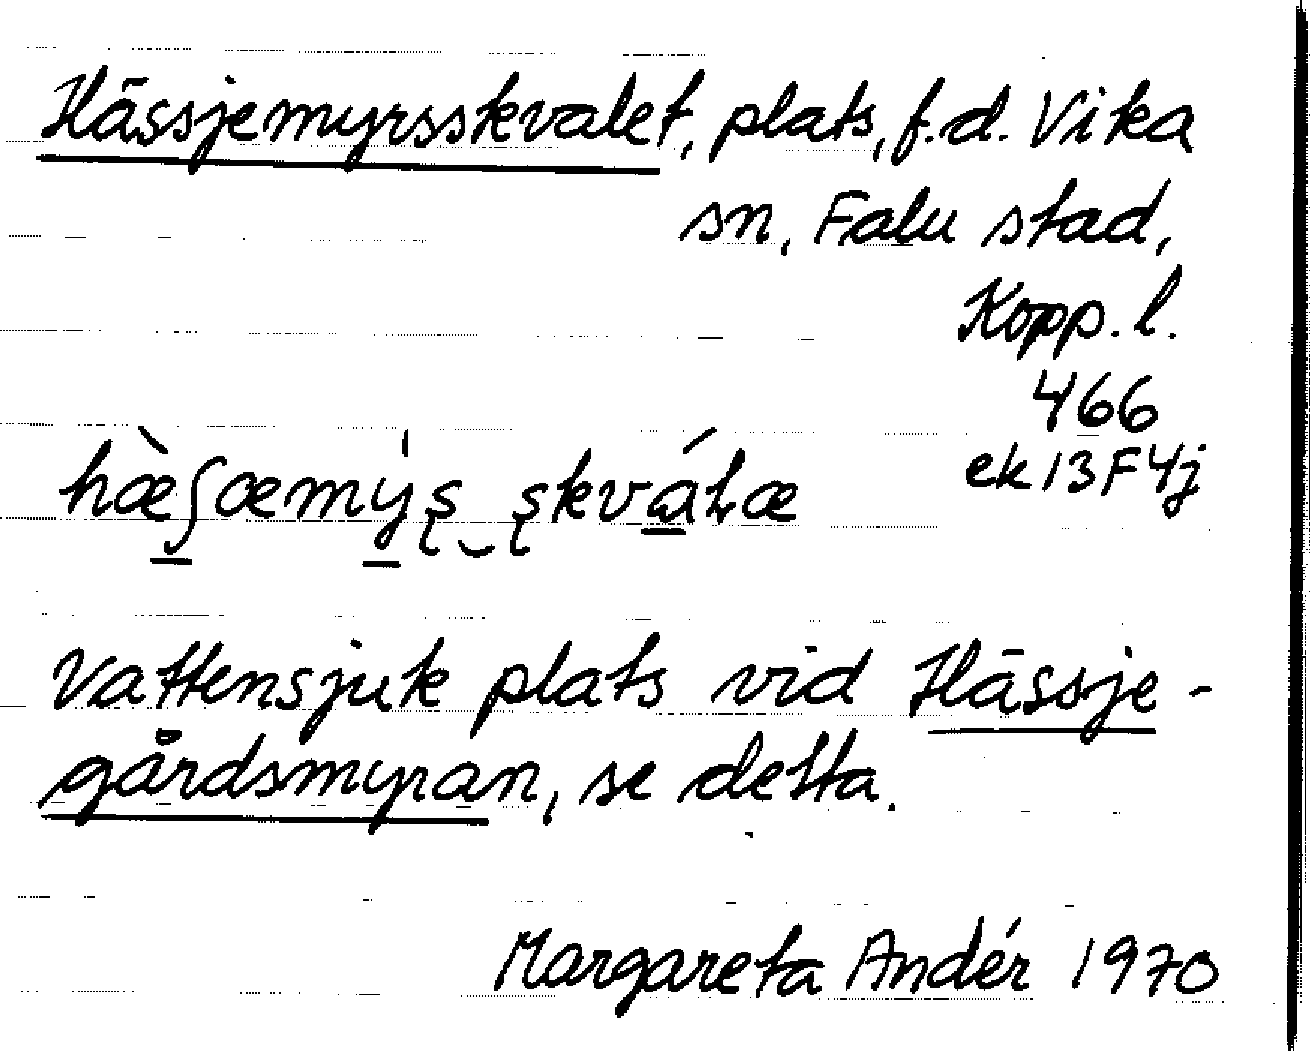 Hässjemyrsskvalet, plats, f.d. Vika
sn, Falu stad,
Kopp. l.
466
ek 13F4j
Vattensjuk plats vid Hässje-
gårdsmyran, se detta.
Margareta Andér 1970